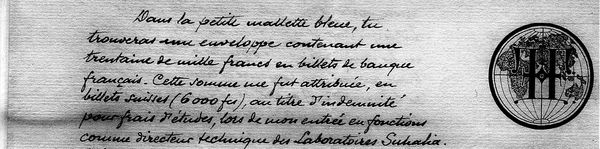 Dans la petite mallette bleue, tu
trouveras une enveloppe contenant une
trentaine de mille francs en billets de banque
français. Cette somme me fut attribuée, en
billets suisses (6000 fs), au titre d'indemnité
pour frais d'études, lors de mon entrée en fonctions
comme directeur technique des Laboratoires Suhalia.